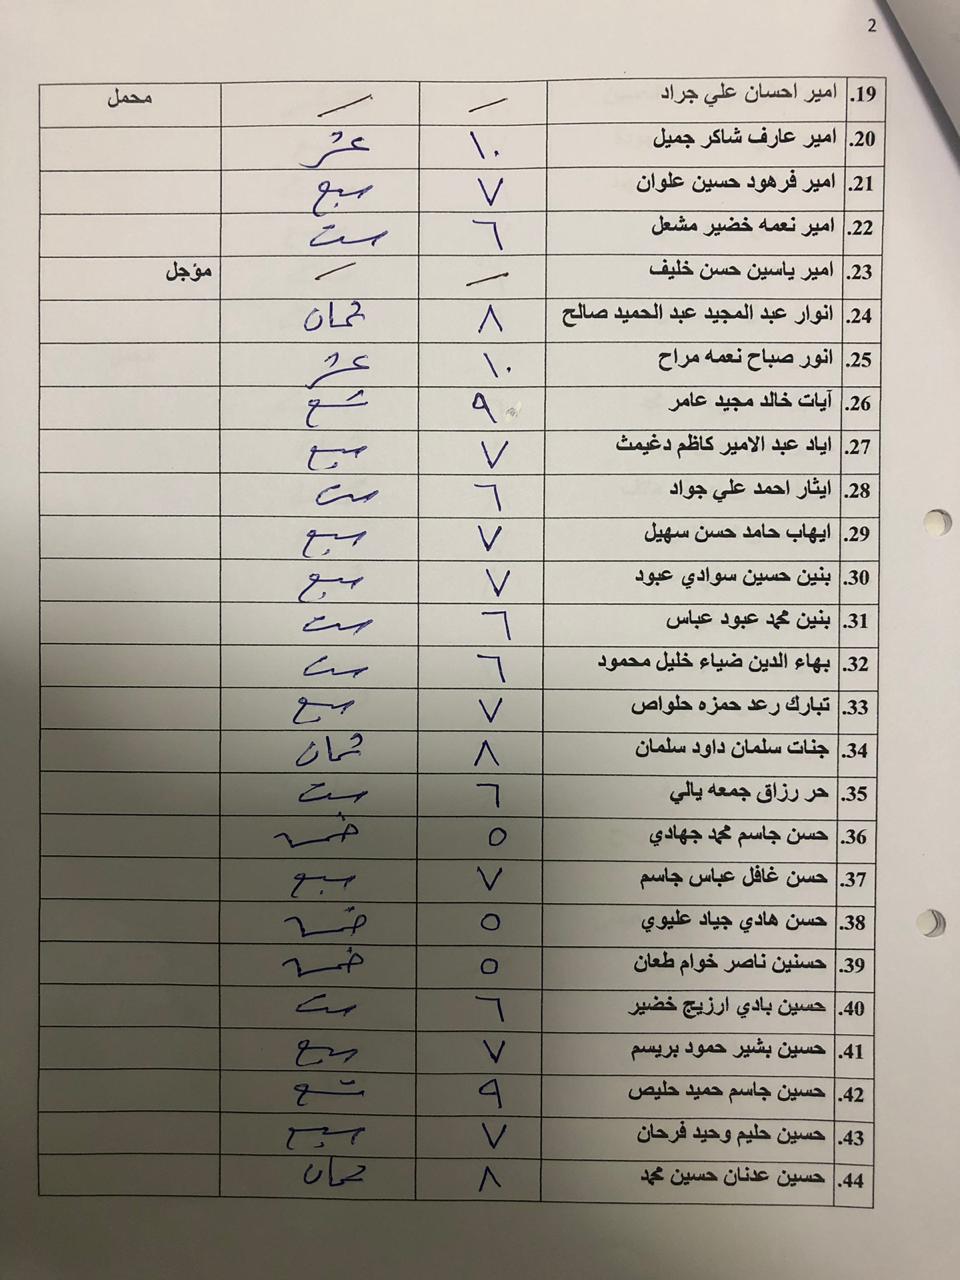 2
19. امير احسان علي جراد — — محمل
20. امير عارف شاكر جميل ١٠ عشر
21. امير فرهود حسين علوان ٧ سبع
22. امير نعمه خضير مشعل ٦ ست
23. امير ياسين حسن خليف — — مؤجل
24. انوار عبد المجيد عبد الحميد صالح ٨ ثمان
25. انور صباح نعمه مراح ١٠ عشر
26. آيات خالد مجيد عامر ٩ تسع
27. اياد عبد الامير كاظم دغيمث ٧ سبع
28. ايثار احمد علي جواد ٦ ست
29. ايهاب حامد حسن سهيل ٧ سبع
30. بنين حسين سوادي عبود ٧ سبع
31. بنين محمد عبود عباس ٦ ست
32. بهاء الدين ضياء خليل محمود ٦ ست
33. تبارك رعد حمزه حلواص ٧ سبع
34. جنات سلمان داود سلمان ٨ ثمان
35. حر رزاق جمعه يالي ٦ ست
36. حسن جاسم محمد جهادي ٥ خمسه
37. حسن غافل عباس جاسم ٧ سبع
38. حسن هادي جياد عليوي ٥ خمسه
39. حسنين ناصر خوام طعان ٥ خمسه
40. حسين بادي ارزيج خضير ٦ ست
41. حسين بشير حمود بريسم ٧ سبع
42. حسين جاسم حميد حليص ٩ تسع
43. حسين حليم وحيد فرحان ٧ سبع
44. حسين عدنان حسين محمد ٨ ثمان